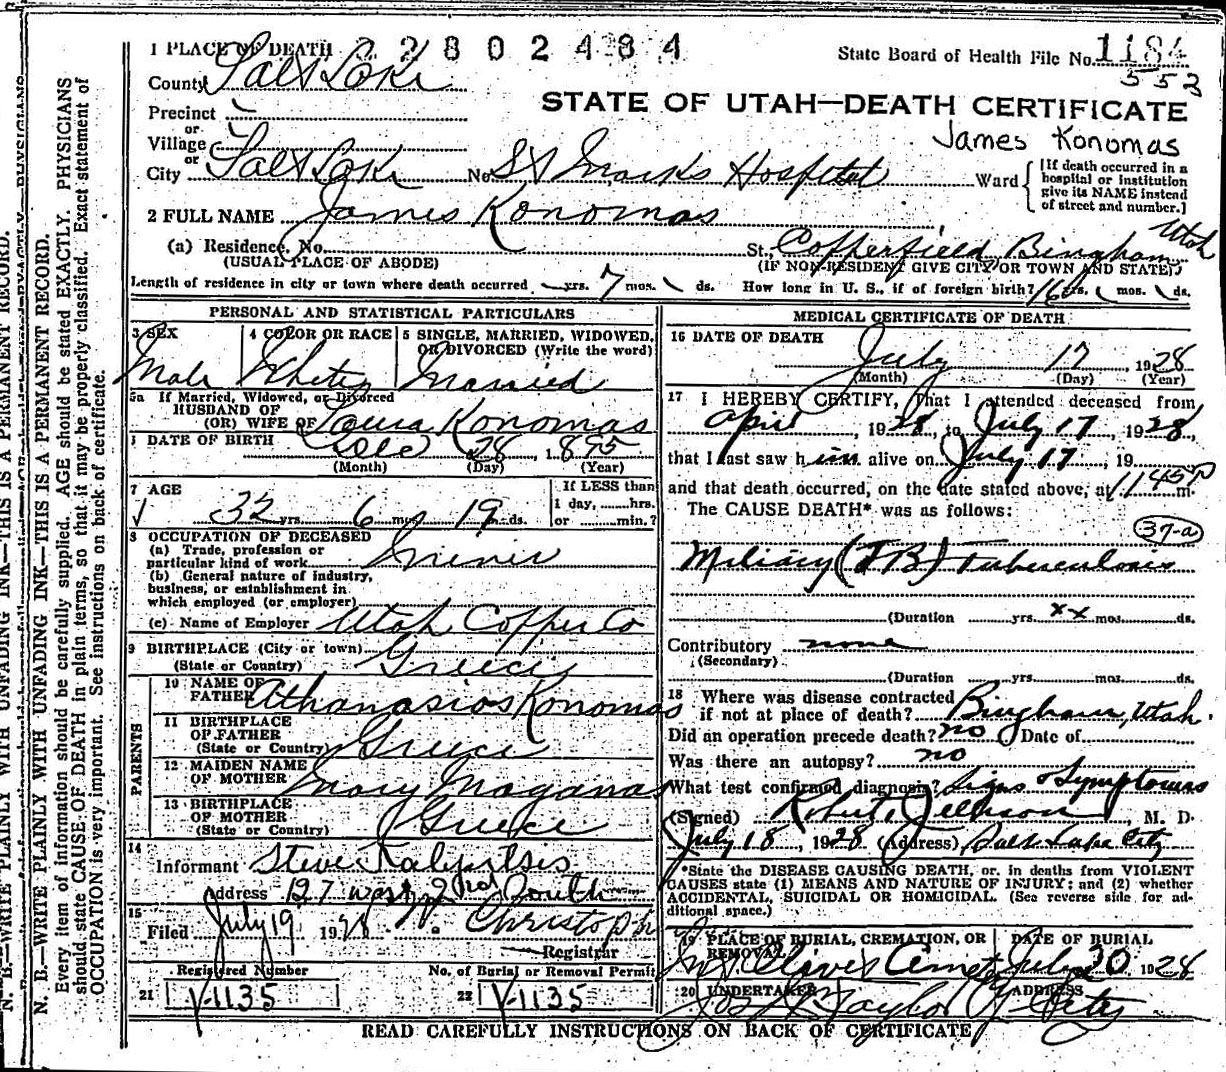 1 PLACE OF DEATH 2 2 8 0 2 4 8 4
State Board of Health File No. 1184
552
County Salt Lake
STATE OF UTAH—DEATH CERTIFICATE
Precinct
James Konomas
or
Village
or
City Salt Lake No. St Marks Hospital Ward
[If death occurred in a
hospital or institution
give its NAME instead
of street and number.]
2 FULL NAME James Konomas
Utah
(a) Residence. No. St., Copperfield, Bingham
(USUAL PLACE OF ABODE) (IF NON-RESIDENT GIVE CITY OR TOWN AND STATE)
Length of residence in city or town where death occurred yrs. 7 mos. ds. How long in U. S., if of foreign birth? 16 yrs. mos. ds.
PERSONAL AND STATISTICAL PARTICULARS
3 SEX
Male
4 COLOR OR RACE
White
5 SINGLE, MARRIED, WIDOWED,
OR DIVORCED (Write the word)
Married
5a If Married, Widowed, or Divorced
HUSBAND OF
(OR) WIFE OF Laura Konomas
DATE OF BIRTH Dec 28 1895
(Month) (Day) (Year)
7 AGE
32 yrs 6 mos 19 ds.
If LESS than
1 day, hrs.
or min.?
8 OCCUPATION OF DECEASED
(a) Trade, profession or
particular kind of work Miner
(b) General nature of industry,
business, or establishment in
which employed (or employer)
(c) Name of Employer Utah Copper Co
9 BIRTHPLACE (City or town)
(State or Country) Greece
PARENTS
10 NAME OF
FATHER Athanasios Konomas
11 BIRTHPLACE
OF FATHER
(State or Country) Greece
12 MAIDEN NAME
OF MOTHER Mary Maganas
13 BIRTHPLACE
OF MOTHER
(State or Country) Greece
14
Informant Steve
Address 127 West 2nd South
15
Filed July 19 1928
Registrar
Registered Number No. of Burial or Removal Permit
21 V-1135 22 V-1135
MEDICAL CERTIFICATE OF DEATH
16 DATE OF DEATH
July 17, 1928
(Month) (Day) (Year)
17 I HEREBY CERTIFY, That I attended deceased from
April, 1928, to July 17, 1928,
that I last saw him alive on July 17, 19
and that death occurred, on the date stated above, at 1145P m.
The CAUSE DEATH* was as follows:
37-a
Miliary (TB) Tuberculosis
(Duration yrs. xx mos. ds.
Contributory none
(Secondary)
(Duration yrs. mos. ds.
18 Where was disease contracted
if not at place of death? Bingham, Utah.
Did an operation precede death? no Date of
Was there an autopsy? no
What test confirmed diagnosis? Signs & Symptoms
(Signed) Robert, M. D.
July 18, 1928 (Address) Salt Lake City
*State the DISEASE CAUSING DEATH, or in deaths from VIOLENT
CAUSES state (1) MEANS AND NATURE OF INJURY; and (2) whether
ACCIDENTAL, SUICIDAL OR HOMICIDAL. (See reverse side for ad-
ditional space.)
19 PLACE OF BURIAL, CREMATION, OR
REMOVAL
Mt. Olivet Cemetery
DATE OF BURIAL
July 20 1928
20 UNDERTAKER ADDRESS
Taylor City
READ CAREFULLY INSTRUCTIONS ON BACK OF CERTIFICATE
N. B.—WRITE PLAINLY WITH UNFADING INK—THIS IS A PERMANENT RECORD.
N. B.—WRITE PLAINLY WITH UNFADING INK—THIS IS A PERMANENT RECORD.
Every item of information should be carefully supplied. AGE should be stated EXACTLY. PHYSICIANS
should state CAUSE OF DEATH in plain terms, so that it may be properly classified. Exact statement of
OCCUPATION is very important. See instructions on back of certificate.